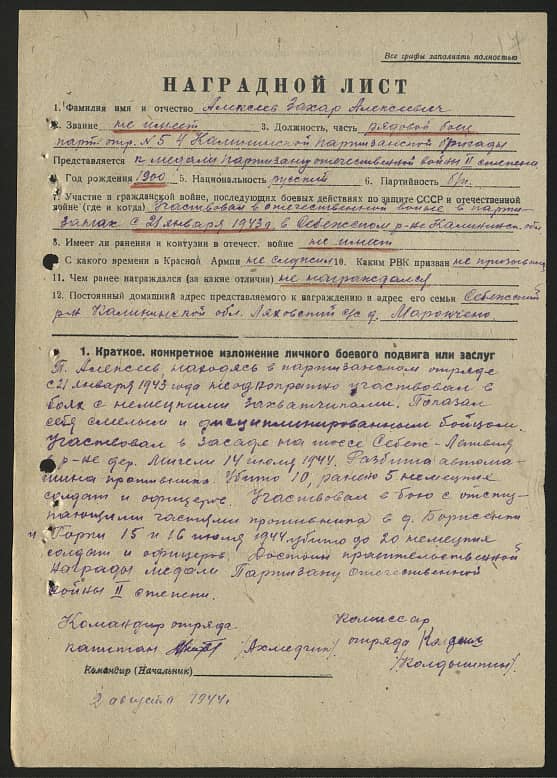 17
Все графы заполнять полностью
НАГРАДНОЙ ЛИСТ
1. Фамилия имя и отчество Алексеев Захар Алексеевич
2. Звание не имеет 3. Должность, часть рядовой боец
парт. отр. №5 4 Калининской партизанской бригады
Представляется к медали партизану отечественной войны II степени
4. Год рождения 1900 5. Национальность русский 6. Партийность б/п.
7. Участие в гражданской войне, последующих боевых действиях по защите СССР и отечественной
войне (где и когда) Участвовал в отечественной войне в парти-
занах с 21 января 1943 г. в Себежском р-не Калининск. обл.
8. Имеет ли ранения и контузии в отечест. войне не имеет
9. С какого времени в Красной Армии не служил 10. Каким РВК призван не призывался
11. Чем ранее награждался (за какие отличия) не награждался
12. Постоянный домашний адрес представляемого к награждению и адрес его семьи Себежский
р-н Калининской обл. Ляховский с/с д.
1. Краткое, конкретное изложение личного боевого подвига или заслуг
Т. Алексеев, находясь в партизанском отряде
с 21 января 1943 года неоднократно участвовал в
боях с немецкими захватчиками. Показал
себя смелым и дисциплинированным бойцом.
Участвовал в засаде на шоссе Себеж-Латвия
в р-не дер. Мигели 14 июля 1944. Разбита автома-
шина противника. Убито 10, ранено 5 немецких
солдат и офицеров. Участвовал в бою с отсту-
пающими частями противника в д.
и 15 и 16 июля 1944 убито до 20 немецких
солдат и офицеров. Достоин правительственной
награды медали Партизану отечественной
войны II степени.
Командир отряда комиссар
капитан /Ахмедчин/ отряда
/Колдышкин/.
Командир (Начальник)
2 августа 1944 г.